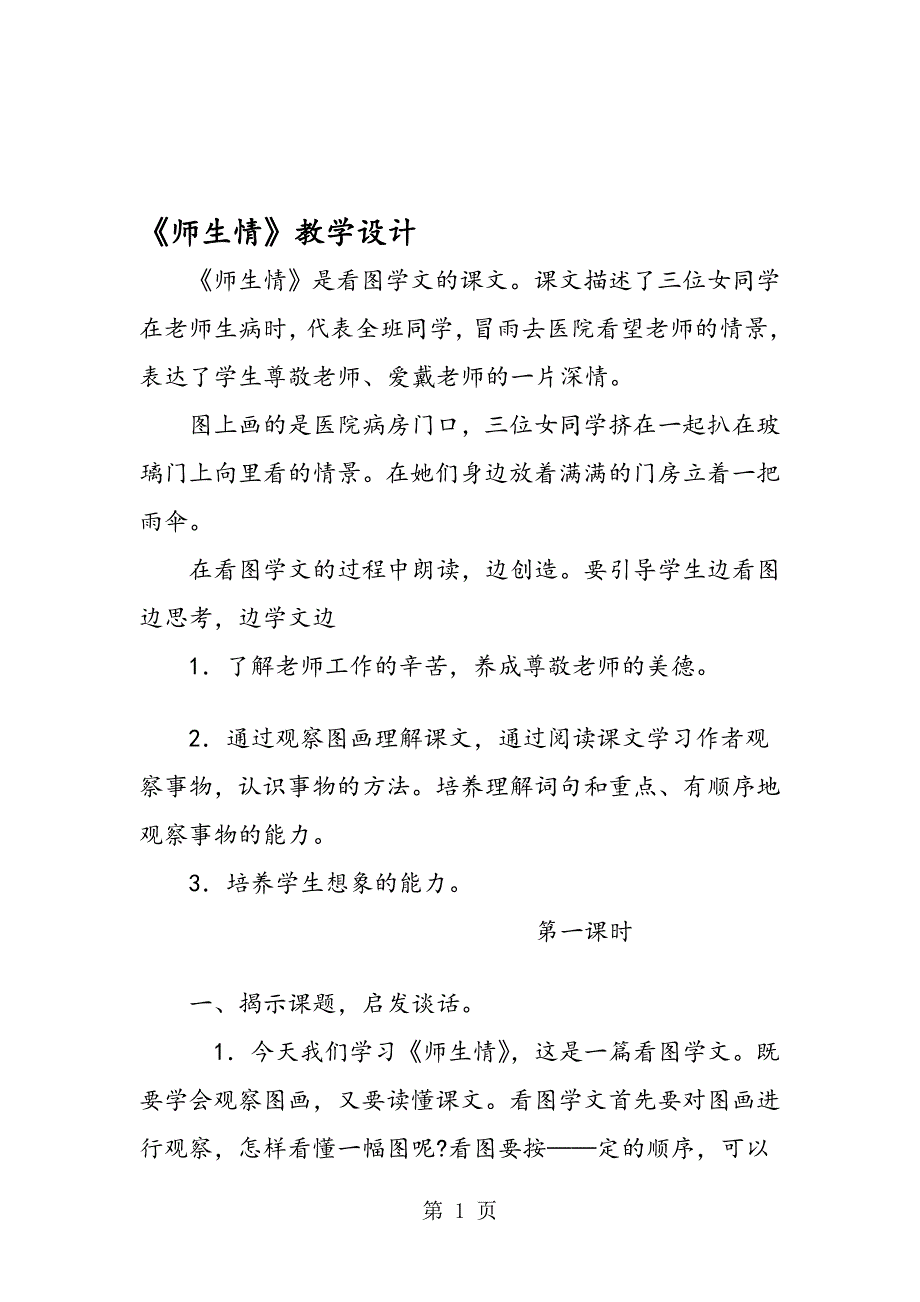 《师生情》教学设计
《师生情》是看图学文的课文。课文描述了三位女同学
在老师生病时，代表全班同学，冒雨去医院看望老师的情景，
表达了学生尊敬老师、爱戴老师的一片深情。
图上画的是医院病房门口，三位女同学挤在一起扒在玻
璃门上向里看的情景。在她们身边放着满满的门房立着一把
雨伞。
在看图学文的过程中朗读，边创造。要引导学生边看图
边思考，边学文边
1．了解老师工作的辛苦，养成尊敬老师的美德。
2．通过观察图画理解课文，通过阅读课文学习作者观
察事物，认识事物的方法。培养理解词句和重点、有顺序地
观察事物的能力。
3．培养学生想象的能力。
第一课时
一、揭示课题，启发谈话。
1．今天我们学习《师生情》，这是一篇看图学文。既
要学会观察图画，又要读懂课文。看图学文首先要对图画进
行观察，怎样看懂一幅图呢?看图要按——定的顺序，可以
第 1 页